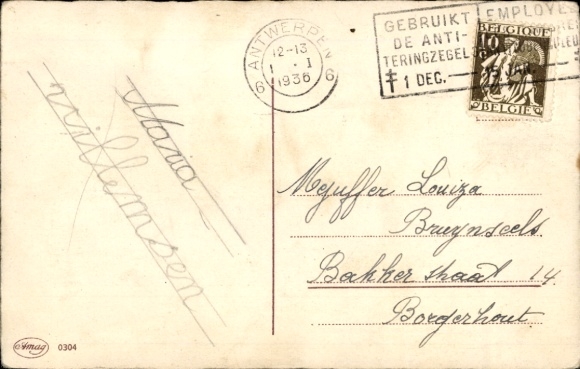 ANTWERPEN
12-13
1 · I
1936
6 6
GEBRUIKT
DE ANTI-
TERINGZEGEL
1 DEC. —
EMPLOYE
BELGIQUE
10
BELGIË
Maria
Willemsen
Mejuffer Louiza
Bruynseels
Bakker straat 14
Borgerhout
Amag 0304